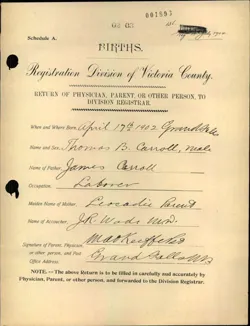 001893
Schedule A.
BIRTHS.
Registration Division of Victoria County.
RETURN OF PHYSICIAN, PARENT, OR OTHER PERSON, TO
DIVISION REGISTRAR.
When and Where Born, April 17th 1902 Grand Falls
Name and Sex, Thomas B. Carroll, male
Name of Father, James Carroll
Occupation, Laborer
Maiden Name of Mother, Leocadie Parent
Name of Accoucher, J.R. Wade M.D.
Signature of Parent, Physician,
or other person, and Post
Office Address, Grand Falls N.B.
NOTE.—The above Return is to be filled in carefully and accurately by
Physician, Parent, or other person, and forwarded to the Division Registrar.